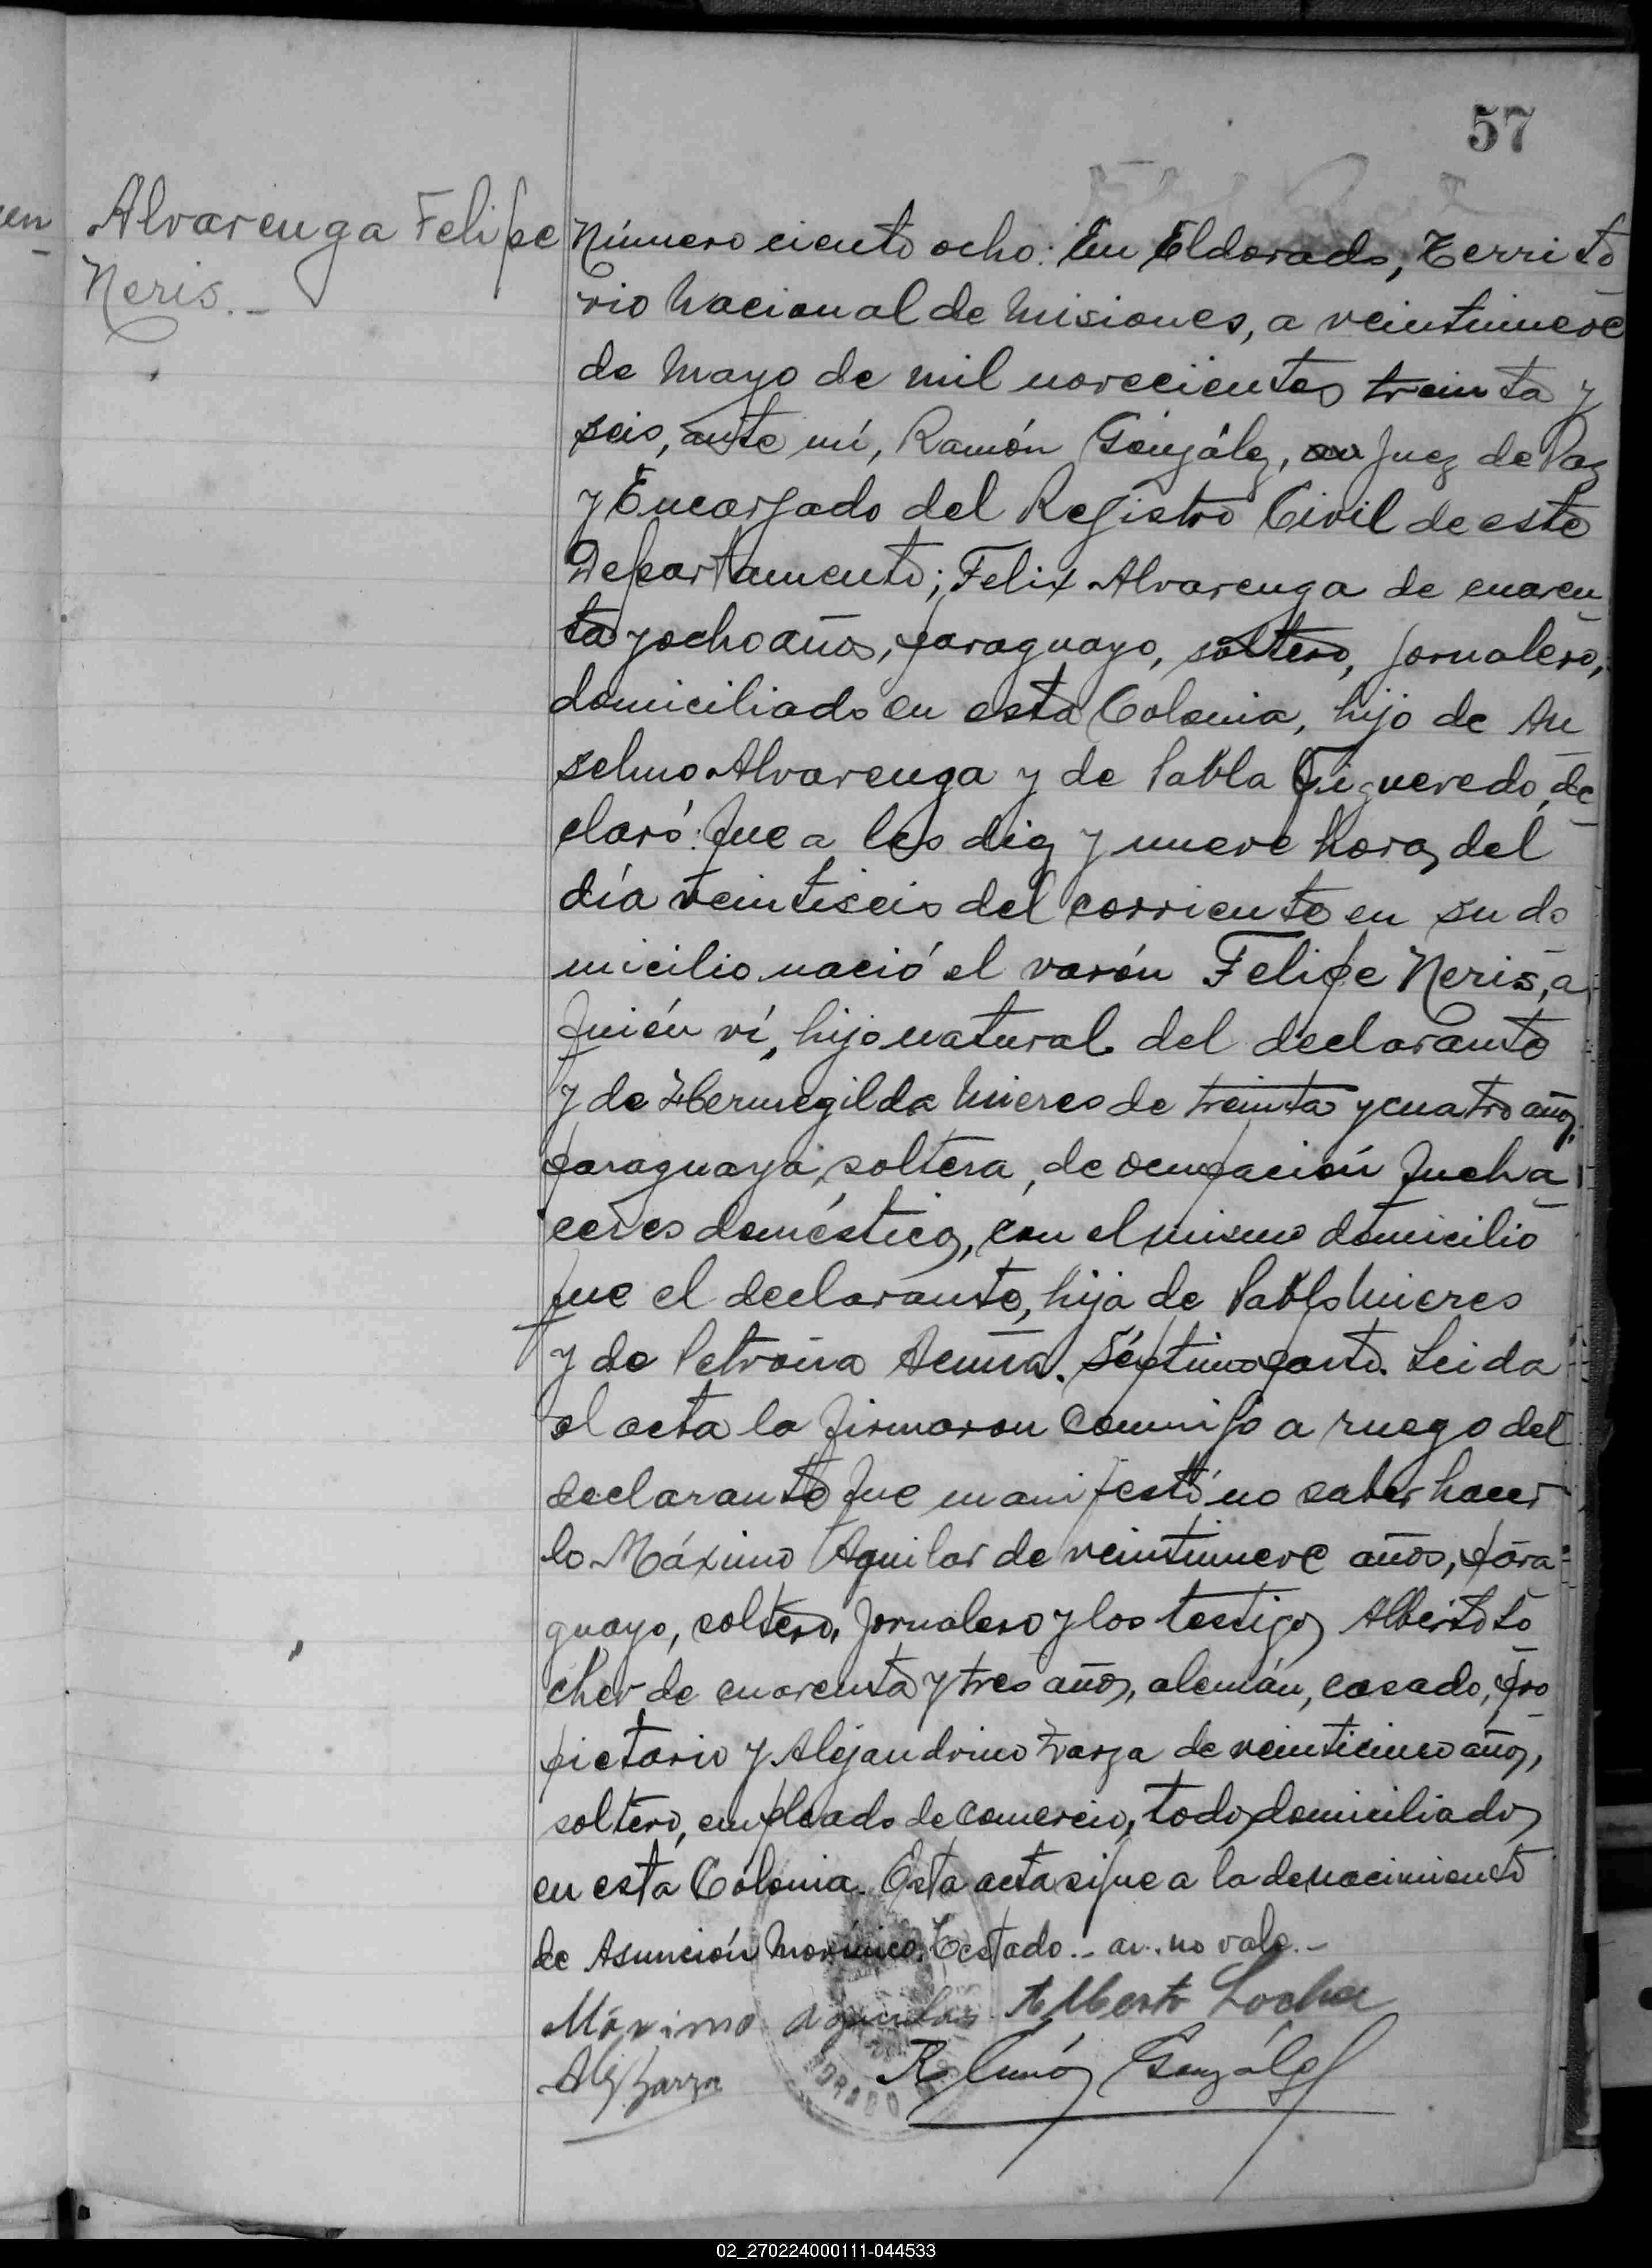 57
Alvarenga Felipe
Neris.-
Número ciento ocho: En Eldorado, Territo
rio Nacional de Misiones, a veintinueve
de Mayo de mil novecientos treinta y
seis, ante mí, Ramón González, au Juez de Paz
y Encargado del Registro Civil de este
Departamento; Felix Alvarenga de cuaren
ta y ocho años, paraguayo, soltero, jornalero,
domiciliado en esta Colonia, hijo de An
selmo Alvarenga y de Pabla Figueredo, de
claró: Que a las diez y nueve horas del
día veintiseis del corriente en su do
micilio nació el varón Felipe Neris, a
quién ví, hijo natural del declarante
y de Hermegilda Mieres de treinta y cuatro años,
paraguaya, soltera, de ocupación queha
ceres domésticos, con el mismo domicilio
que el declarante, hija de Pablo Mieres
y de Petrona Acuña. Séptimo parto. Leida
el acta la firmaron conmigo a ruego del
declarante que manifestó no saber hacer
lo Máximo Aguilar de veintinueve años, para
guayo, soltero, jornalero y los testigos Alberto Lo
cher de cuarenta y tres años, alemán, casado, pro
pietario y Alejandrino Zarza de veinticinco años,
soltero, empleado de comercio, todos domiciliados
en esta Colonia. Esta acta sigue a la de nacimiento
de Asunción Morínico. Testado.- au. no vale.-
Máximo Aguilar Alberto Locher
Alej Zarza Ramón González
DORADO
02_270224000111-044533